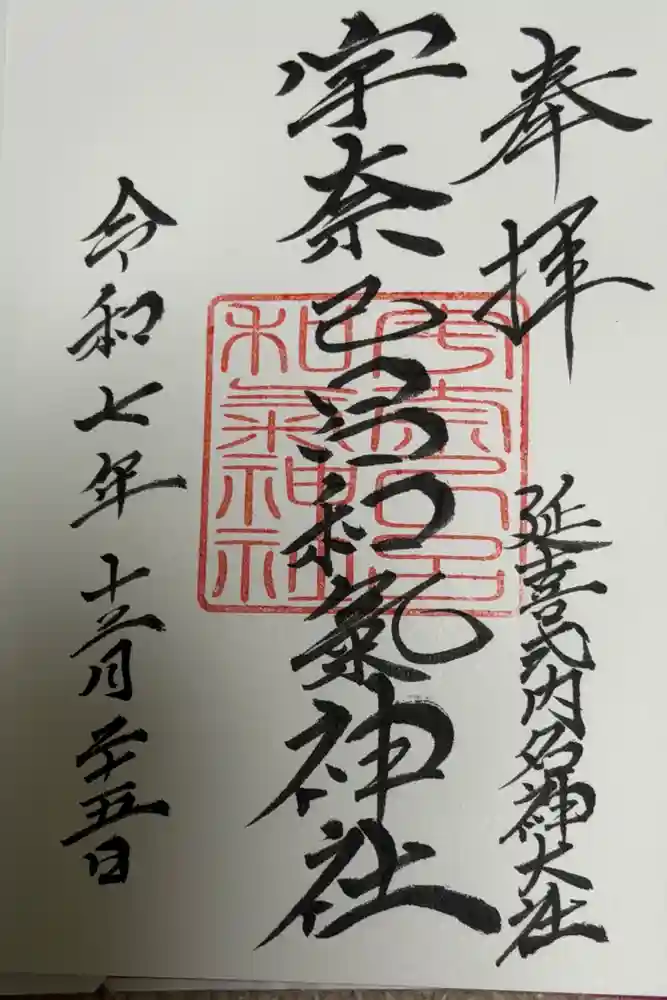 奉拝
延喜式内名神大社
宇奈己呂和氣神社
宇奈己呂
和氣神社
令和七年十二月二十五日